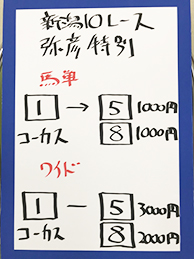 新潟10レース
弥彦特別
馬単
1 → 5 1000円
コーカス 8 1000円
ワイド
1 − 5 3000円
コーカス 8 2000円